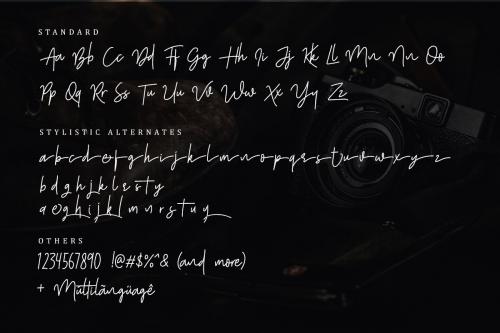 STANDARD
Aa Bb Cc Dd Ff Gg Hh Ii Jj Kk Ll Mm Nn Oo
Pp Qq Rr Ss Tt Uu Vv Ww Xx Yy Zz
STYLISTIC ALTERNATES
a b c d e f g h i j k l m n o p q r s t u v w x y z
b d g h j k l r s t y
a e g h i j k l m n r s t u y
OTHERS
1234567890 !@#$%^& (and more)
+ Multilãngüagê